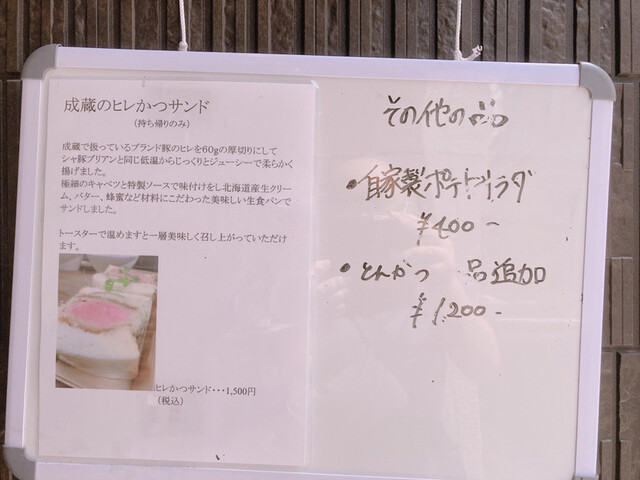 成蔵のヒレかつサンド
（持ち帰りのみ）
成蔵で扱っているブランド豚のヒレを60gの厚切りにして
シャ豚ブリアンと同じ低温からじっくりとジューシーで柔らかく
揚げました。
極細のキャベツと特製ソースで味付けをし北海道産生クリー
ム、バター、蜂蜜など材料にこだわった美味しい生食パンで
サンドしました。
トースターで温めますと一層美味しく召し上がっていただけ
ます。
ヒレかつサンド・・・1,500円
（税込）
その他の品
・自家製ポテトサラダ
¥400-
・とんかつ 品追加
¥1,200-